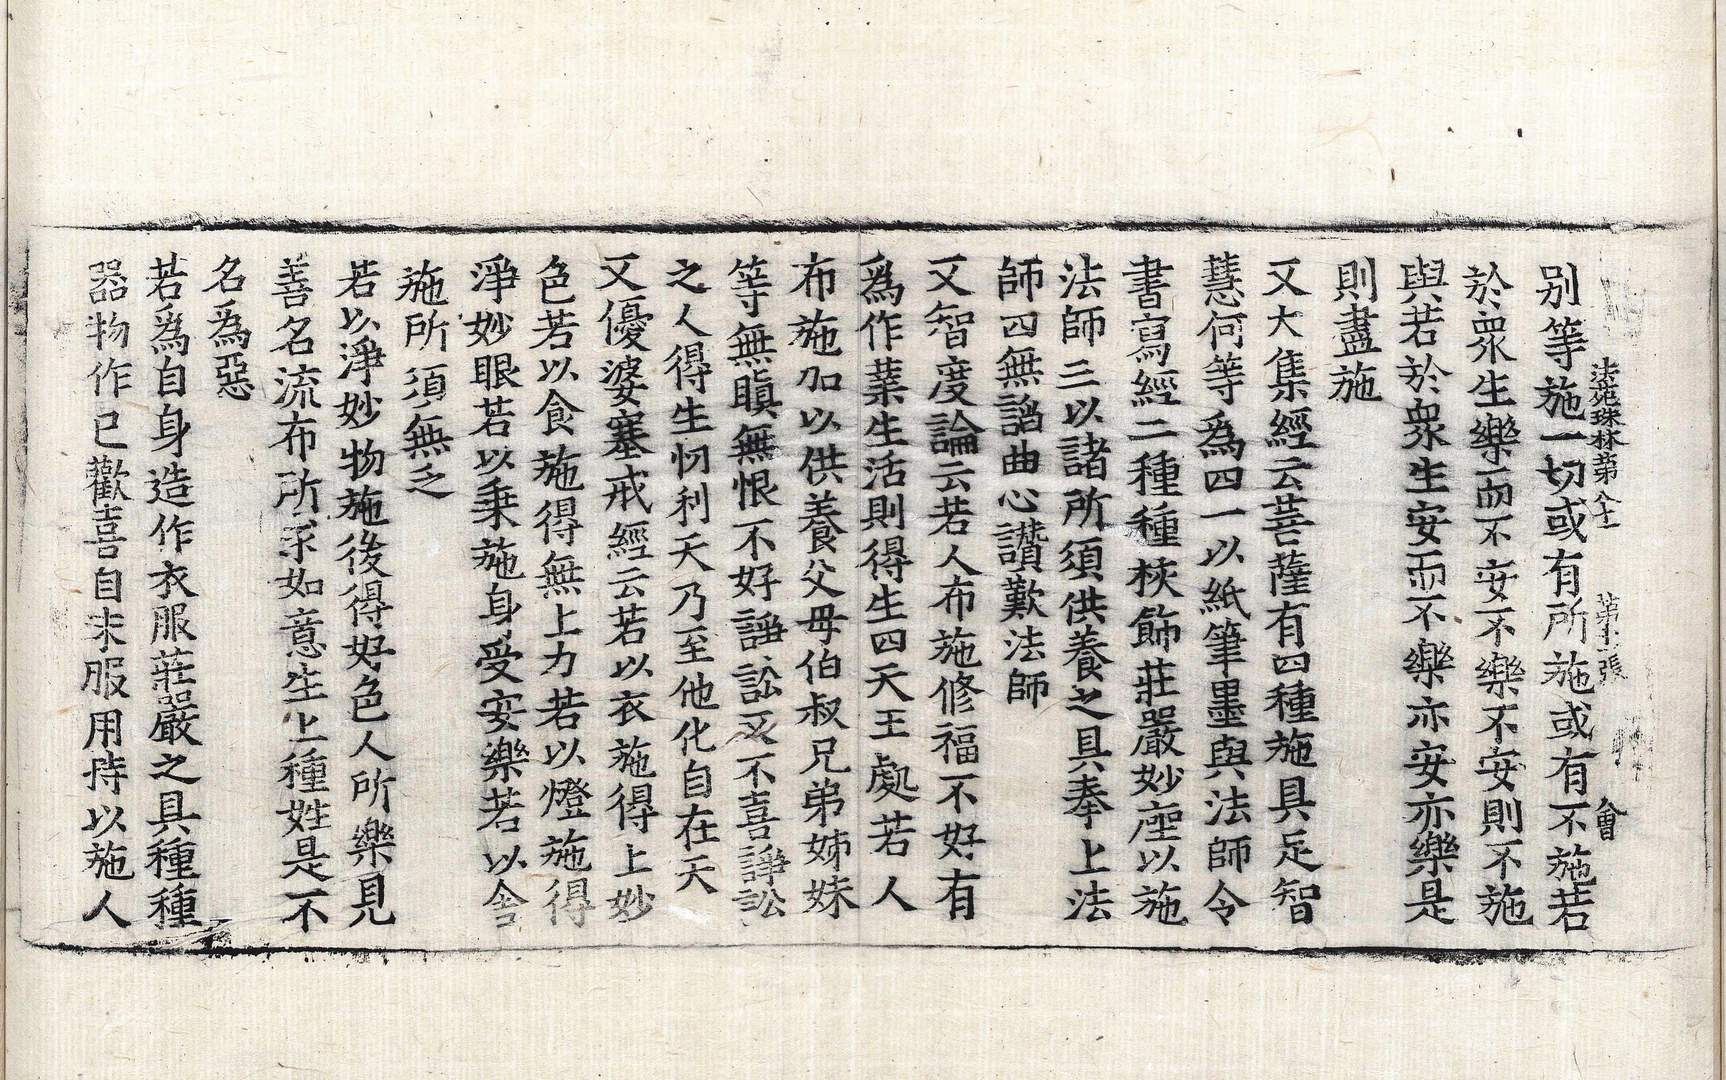 法苑珠林第八十 第十張 會
別等施一切或有所施或有不施若
於衆生樂而不安不樂不安則不施
與若於衆生安而不樂亦安亦樂是
則盡施
又大集經云菩薩有四種施具足智
慧何等爲四一以紙筆墨與法師令
書寫經二種種挍飾莊嚴妙座以施
法師三以諸所須供養之具奉上法
師四無諂曲心讚歎法師
又智度論云若人布施修福不好有
爲作業生活則得生四天王處若人
布施加以供養父母伯叔兄弟姊妹
等無瞋無恨不好諍訟又不喜諍訟
之人得生忉利天乃至他化自在天
又優婆塞戒經云若以衣施得上妙
色若以食施得無上力若以燈施得
淨妙眼若以乗施身受安樂若以舎
施所須無乏
若以淨妙物施後得好色人所樂見
善名流布所求如意生上種姓是不
名爲惡
若爲自身造作衣服莊嚴之具種種
器物作已歡喜自未服用持以施人